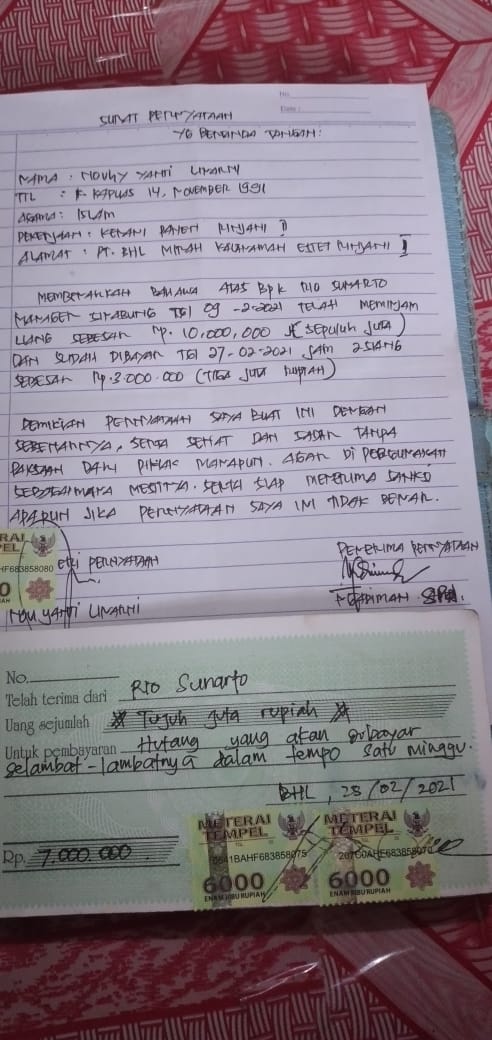 No.
Date :
SURAT PERNYATAAN
YG BERTANDA TANGAN :
NAMA : NOVHY YANTI LINARTI
TTL : K. KAPUAS 14, NOVEMBER 1991
AGAMA : ISLAM
PEKERJAAN : KERANI PANEN RINJANI I
ALAMAT : PT. BHL MITRAH KALAHAMAH ESTET RINJANI I
MEMBERAHKAN BAHAWA ATAS BPK RIO SUNARTO
MANAGER SINABUNG TGL 09 -2-2021 TELAH MEMINJAM
UANG SEBESAR Rp. 10,000,000 (SEPULUH JUTA)
DAN SUDAH DIBAYAR TGL 27-02-2021 JAM 2 SIANG
SEBESAR Rp. 3.000.000 (TIGA JUTA RUPIAH)
DEMIKIAN PERNYATAAN SAYA BUAT INI DENGAN
SEBENARNYA, SERTA SEHAT DAN SADAR TANPA
PAKSAAN DARI PIHAK MANAPUN. AGAR DI PERGUNAKAN
SEBAGAIMANA MESTINYA. SERTA SIAP MENERIMA SANKSI
APAPUN JIKA PERNYATAAN SAYA INI TIDAK BENAR.
PERNYATAAN
PENERIMA PERNYATAAN
HF683858080
YANTI LINARTI
No.
Telah terima dari Rio Sunarto
Uang sejumlah # Tujuh juta rupiah #
Untuk pembayaran Hutang yang akan dibayar
selambat-lambatnya dalam tempo satu minggu.
BHL, 28/02/2021
METERAI TEMPEL METERAI TEMPEL
Rp. 7.000.000
6000 6000
ENAM RIBU RUPIAH ENAM RIBU RUPIAH